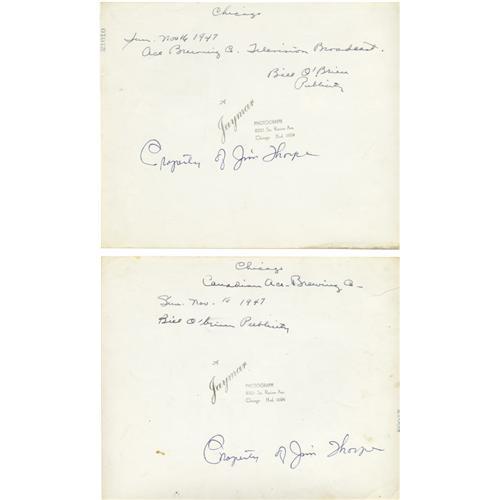 Chicago
Sun. Nov 16 1947
Ace Brewing Co. Television Broadcast.
Bill O'Brien
Publicity
A
Jaymar
PHOTOGRAPH
Chicago
Property of Jim Thorpe
Chicago
Canadian Ace-Brewing Co-
Sun. Nov. 16 1947
Bill O'brien Publicity
A
Jaymar
PHOTOGRAPH
Chicago
Property of Jim Thorpe